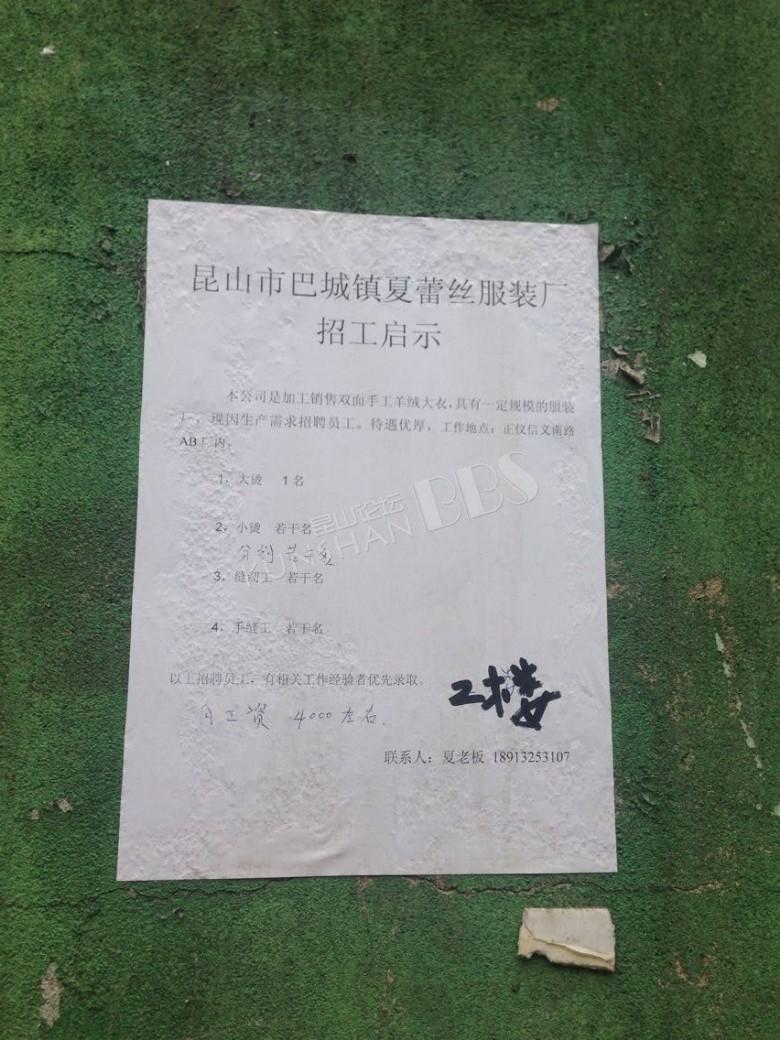 昆山市巴城镇夏蕾丝服装厂
招工启示
本公司是加工销售双面手工羊绒大衣,具有一定规模的服装
厂,现因生产需求招聘员工。待遇优厚,工作地点:正仪信义南路
AB厂内。
1,大烫 1名
2,小烫 若干名
分割 若干名
3,缝纫工 若干名
4,手缝工 若干名
以上招聘员工,有相关工作经验者优先录取。
二楼
月工资 4000左右.
联系人:夏老板 18913253107
昆山论坛
KUNSHAN BBS